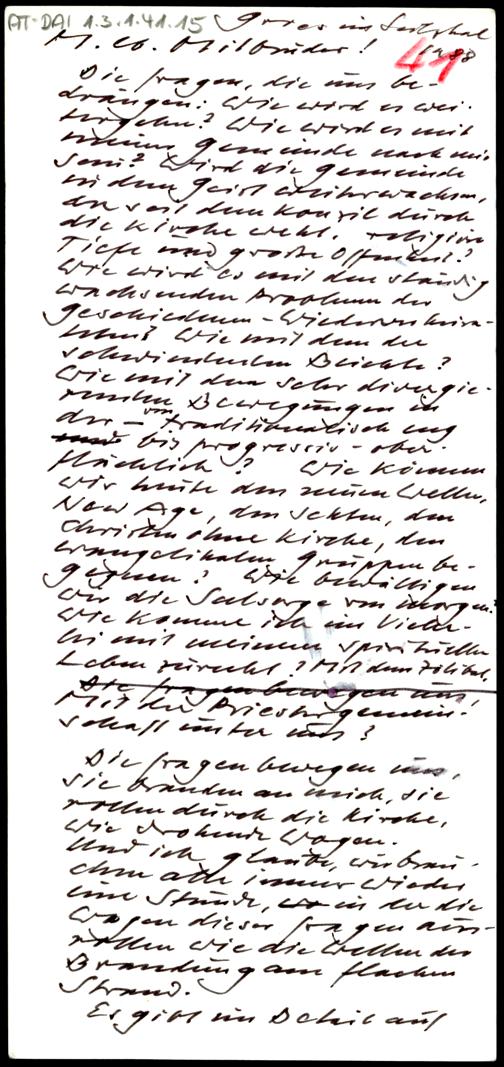 AT-DAI 1.3.1.41.15
Gries im Sellrain
1988
41
M. lb. Mitbrüder!
Die Fragen, die uns be-
drängen: Wie wird es wei-
tergehn? Wie wird es mit
meiner Gemeinde nach mir
sein? Wird die Gemeinde
in dem Geist weiterwachsen,
der seit dem Konzil durch
die Kirche weht. religiöse
Tiefe und große Offenheit?
Wie wird es mit den ständig
wachsenden Problemen der
Geschiedenen-Wiederverheira-
teten? Wie mit dem der
schwindenden Beichte?
Wie mit den sehr divergie-
renden Bewegungen in
der – von traditionalistisch eng
und bis progressiv-ober-
flächlich? Wie können
wir heute den neuen Wellen,
New Age, den Sekten, den
Christen ohne Kirche, den
evangelikalen Gruppen be-
gegnen? Wie bewältigen
wir die Seelsorge von morgen?
Wie komme ich im Vieler-
lei mit meinem spirituellen
Leben zurecht? Mit dem Zölibat,
Die Fragen bewegen uns,
Mit der Priestergemein-
schaft unter uns?
Die Fragen bewegen uns,
sie branden an mich, sie
rollen durch die Kirche,
wie drohende Wogen.
Und ich glaube, wir brau-
chen alle immer wieder
eine Stunde, wo in der die
Wogen dieser Fragen aus-
rollen wie die Wellen der
Brandung am flachen
Strand.
Es gibt im Detail auf